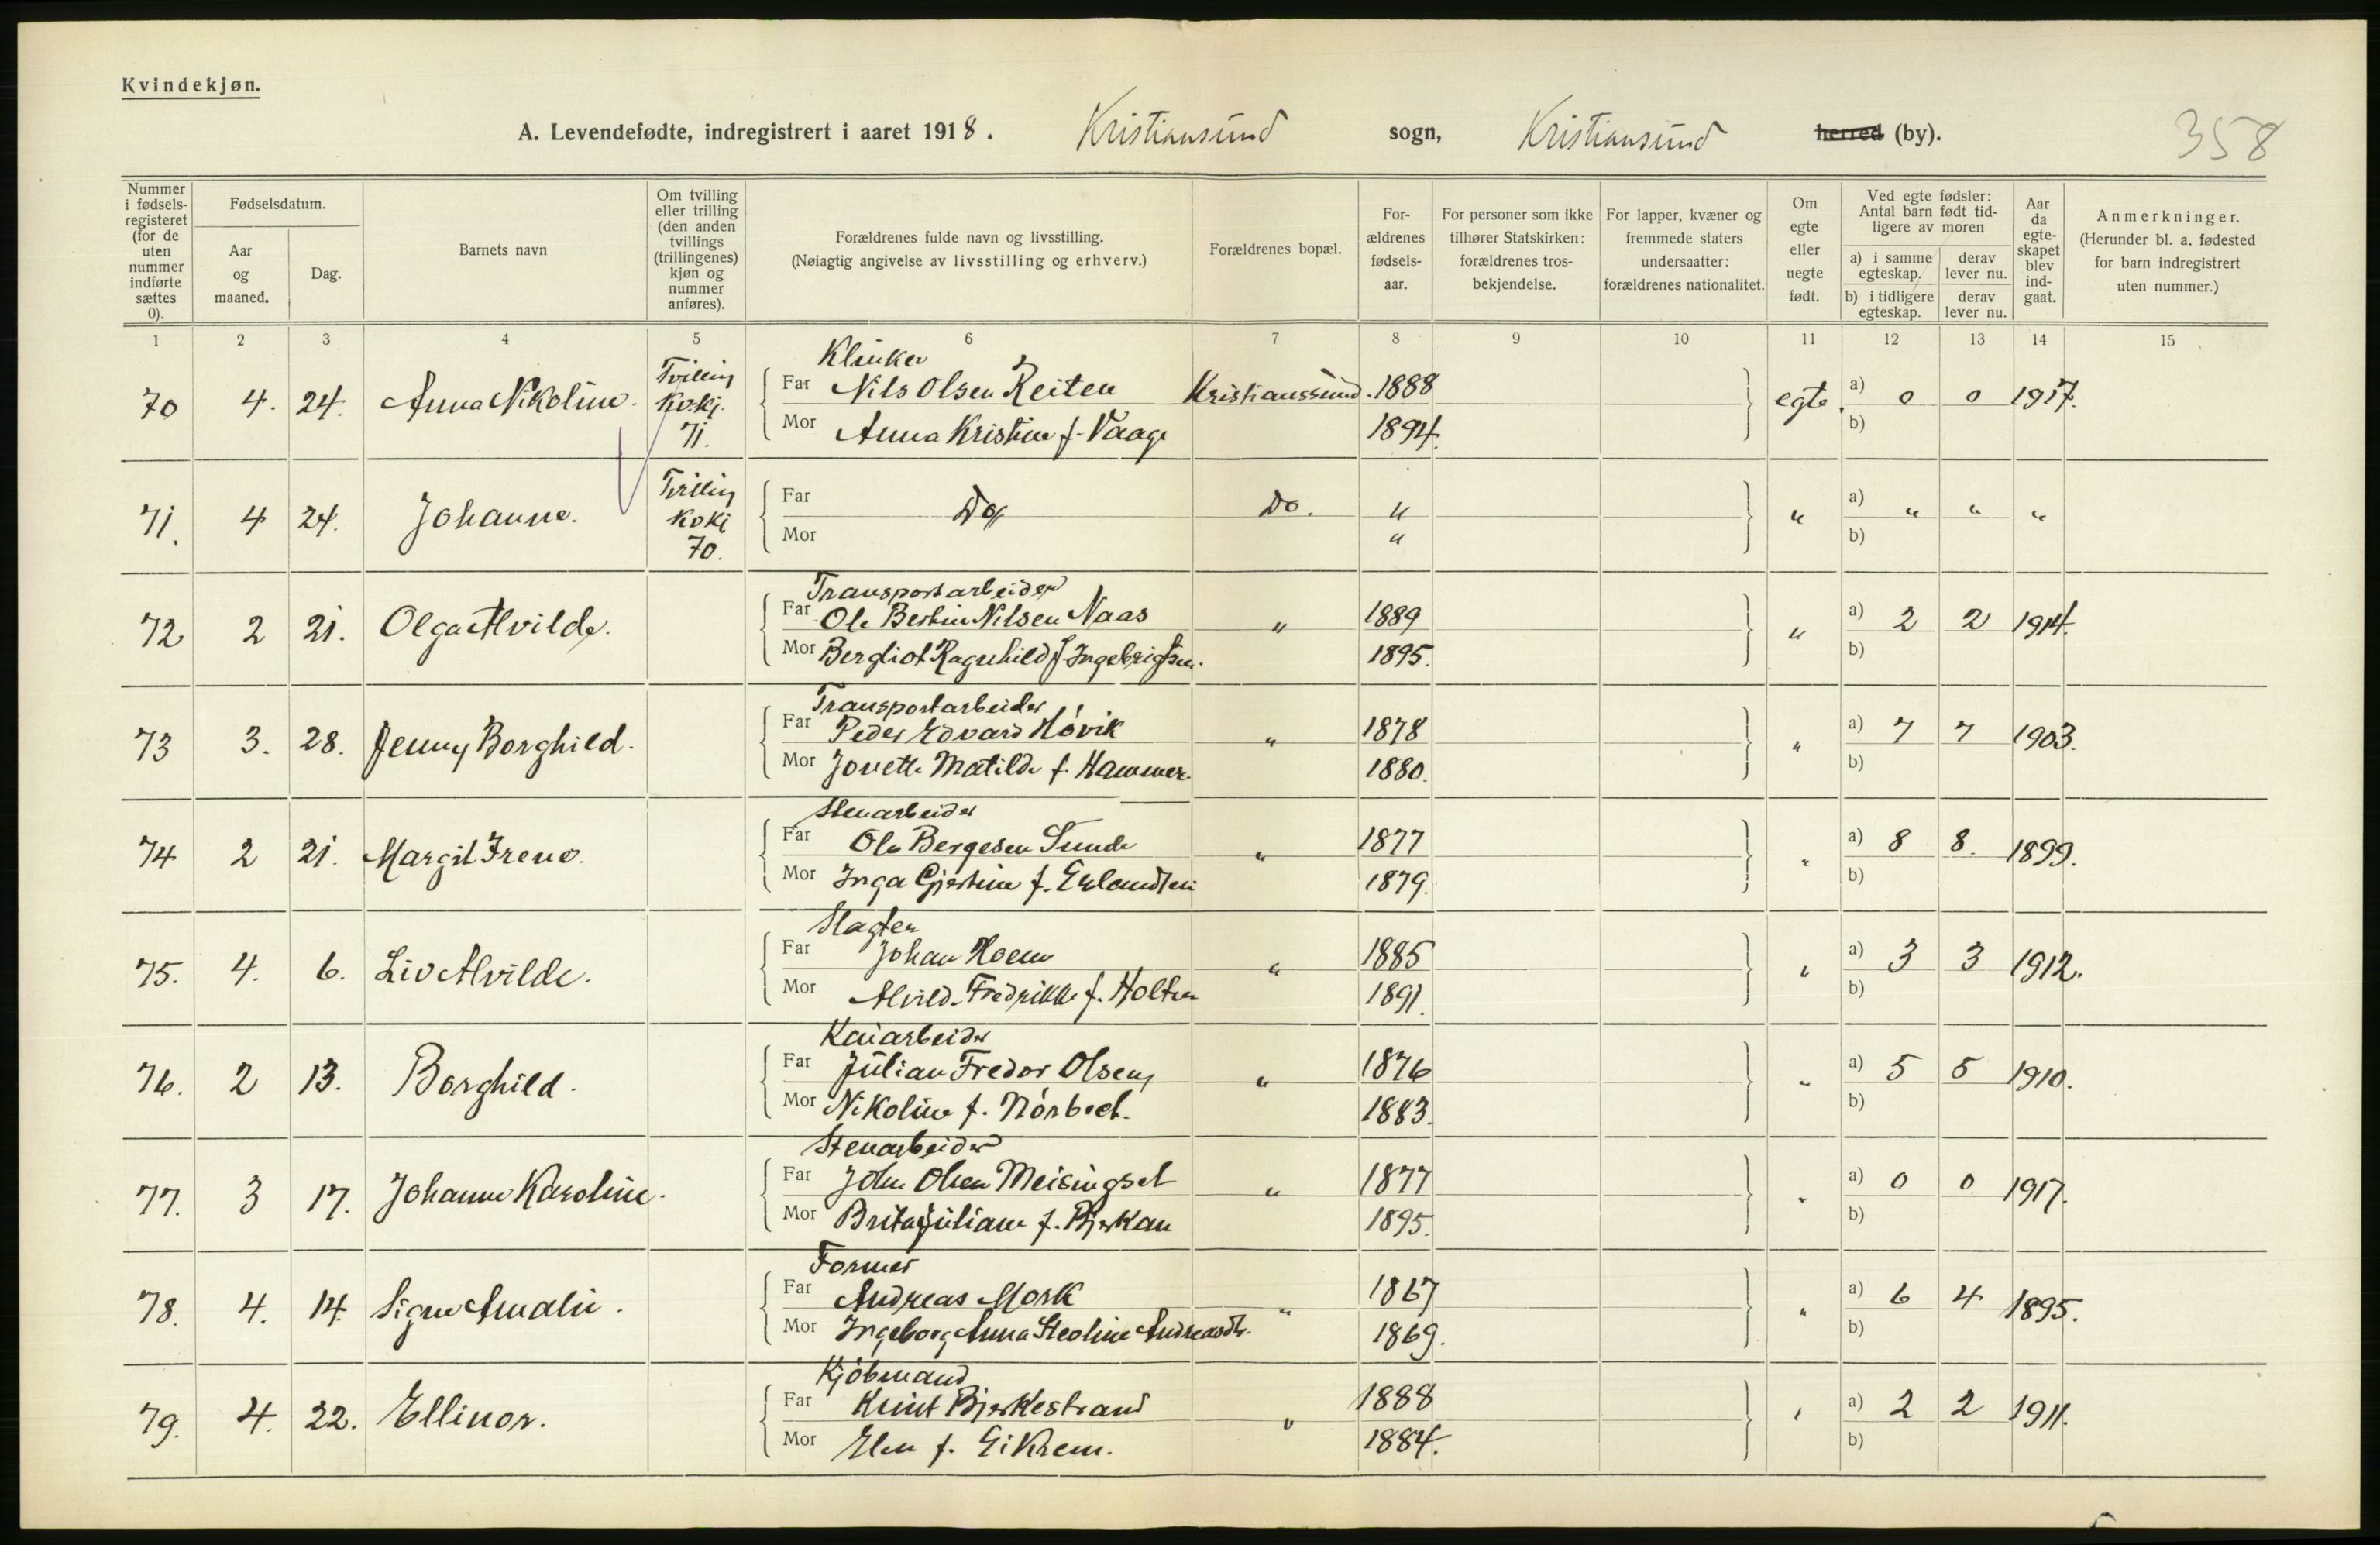 Kvindekjøn.
A. Levendefødte, indregistrert i aaret 1918. Kristiansund sogn, Kristiansund herred (by). 358
Nummer i fødselsregisteret (for de uten nummer indførte sættes 0).
Fødselsdatum.
Aar og maaned.
Dag.
Barnets navn
Om tvilling eller trilling (den anden tvillings (trillingenes) kjøn og nummer anføres).
Forældrenes fulde navn og livsstilling.
(Nøiagtig angivelse av livsstilling og erhverv.)
Forældrenes bopæl.
Forældrenes fødselsaar.
For personer som ikke tilhører Statskirken: forældrenes trosbekjendelse.
For lapper, kvæner og fremmede staters undersaatter: forældrenes nationalitet.
Om egte eller uegte født.
Ved egte fødsler: Antal barn født tidligere av moren
a) i samme egteskap. derav lever nu.
b) i tidligere egteskap. derav lever nu.
Aar da egteskapet blev indgaat.
Anmerkninger.
(Herunder bl. a. fødested for barn indregistrert uten nummer.)
1 2 3 4 5 6 7 8 9 10 11 12 13 14 15
Klinker
70 4. 24. Anna Nikoline. Tvilling Kv.kj. 71. Far Nils Olsen Reiten Kristianssund. 1888 egte. a) 0 0 1917.
Mor Anna Kristine f. Vaage 1894. b)
71. 4 24. Johanne. Tvilling Kv kj 70. Far Do Do. " " a) " " "
Mor " b)
Transportarbeider
72 2 21. Olga Alvilde. Far Ole Bertin Nilsen Naas " 1889 " a) 2 2 1914.
Mor Bergliot Ragnhild f. Ingebrigtsen. 1895. b)
Transportarbeider
73 3. 28. Jenny Borghild. Far Peder Edvard Høvik " 1878 " a) 7 7 1903.
Mor Jonette Matilde f. Hammer 1880. b)
Stenarbeider
74 2 21. Margit Irene. Far Ole Bergesen Sunde " 1877 " a) 8 8. 1899.
Mor Inga Gjertine f. Erlandsen 1879. b)
Slagter
75. 4. 6. Liv Alvilde. Far Johan Hoem " 1885 " a) 3 3 1912.
Mor Alvilde Fredrikke f. Holten 1891. b)
Kaiarbeider
76. 2 13. Borghild. Far Julian Fredor Olsen " 1876 " a) 5 5 1910.
Mor Nikoline f. Nørbech. 1883. b)
Stenarbeider
77. 3 17. Johanne Karoline. Far John Olsen Meisingset " 1877 " a) 0 0 1917.
Mor Brita Juliane f. Bjerkan 1895. b)
Former
78. 4. 14. Signe Amalie. Far Andreas Mork " 1867 " a) 6 4 1895.
Mor Ingeborg Anna Steoline Andreasdtr. 1869. b)
Kjøbmand
79. 4. 22. Ellinor. Far Knut Bjerkestrand " 1888 " a) 2 2 1911.
Mor Elen f. Eikrem. 1884. b)